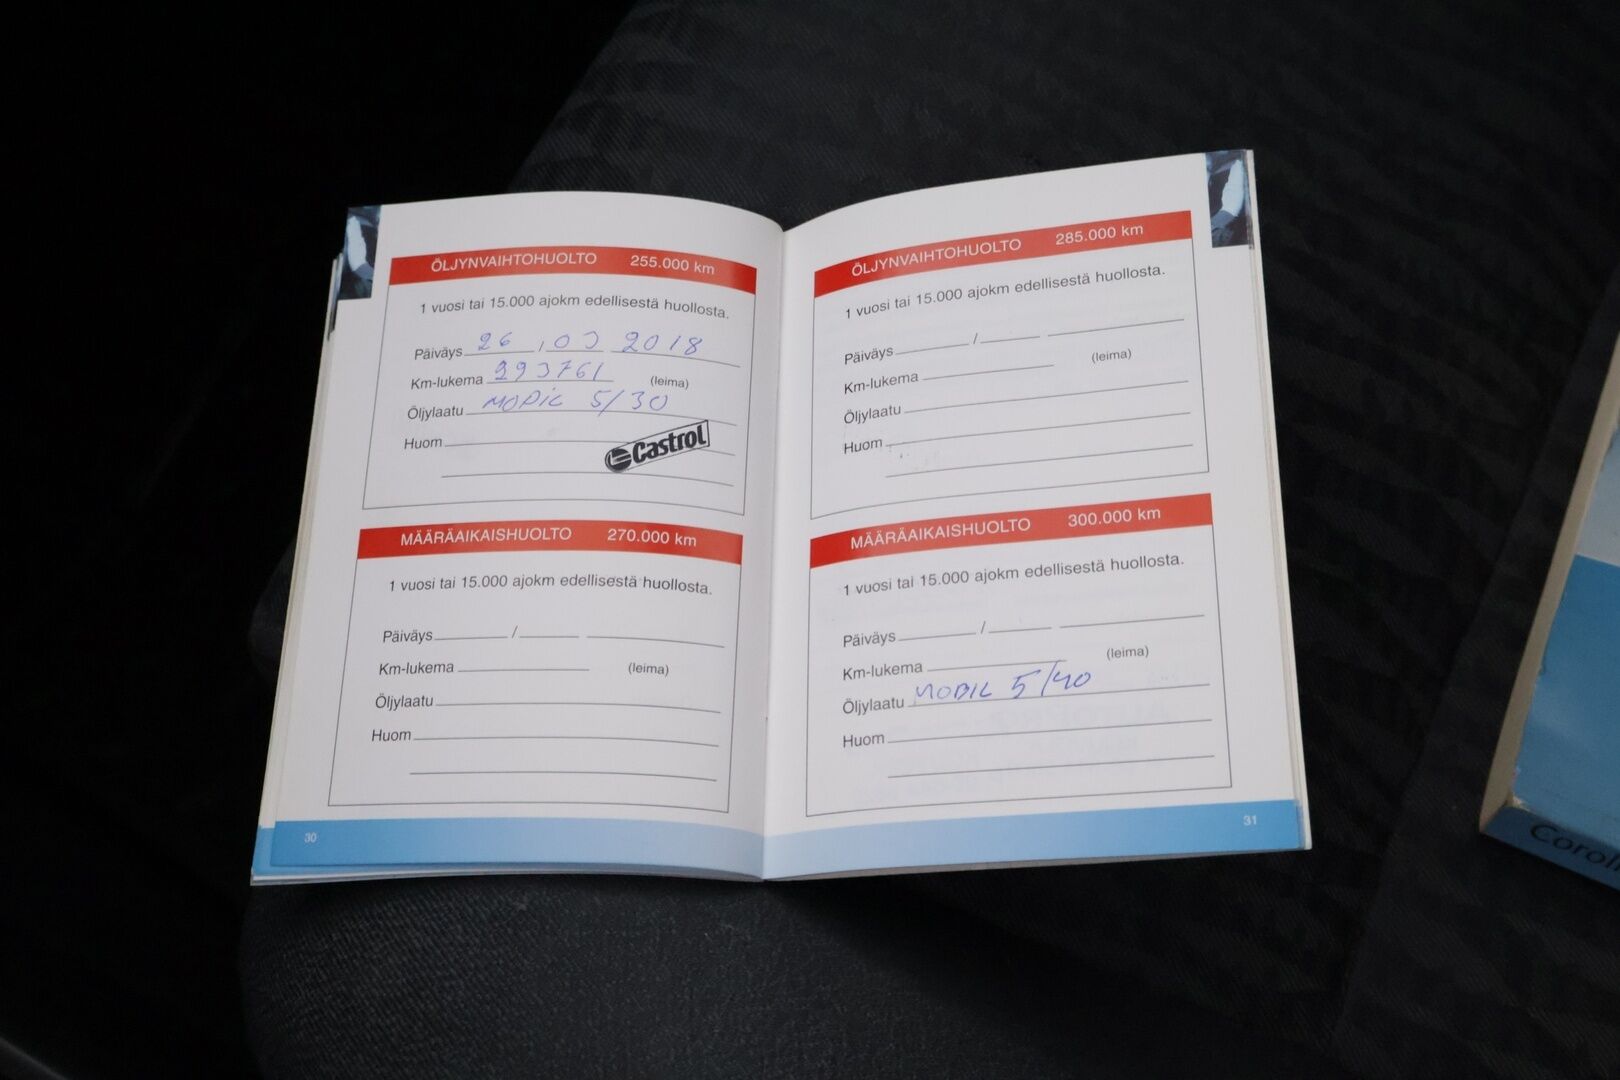 ÖLJYNVAIHTOHUOLTO 255.000 km
1 vuosi tai 15.000 ajokm edellisestä huollosta.
Päiväys 26 , 03 2018
Km-lukema 293761 (leima)
Öljylaatu MOBIL 5/30
Huom
Castrol
MÄÄRÄAIKAISHUOLTO 270.000 km
1 vuosi tai 15.000 ajokm edellisestä huollosta.
Päiväys / 
Km-lukema (leima)
Öljylaatu
Huom
30
ÖLJYNVAIHTOHUOLTO 285.000 km
1 vuosi tai 15.000 ajokm edellisestä huollosta.
Päiväys /
Km-lukema (leima)
Öljylaatu
Huom
MÄÄRÄAIKAISHUOLTO 300.000 km
1 vuosi tai 15.000 ajokm edellisestä huollosta.
Päiväys /
Km-lukema (leima)
Öljylaatu MOBIL 5/40
Huom
31